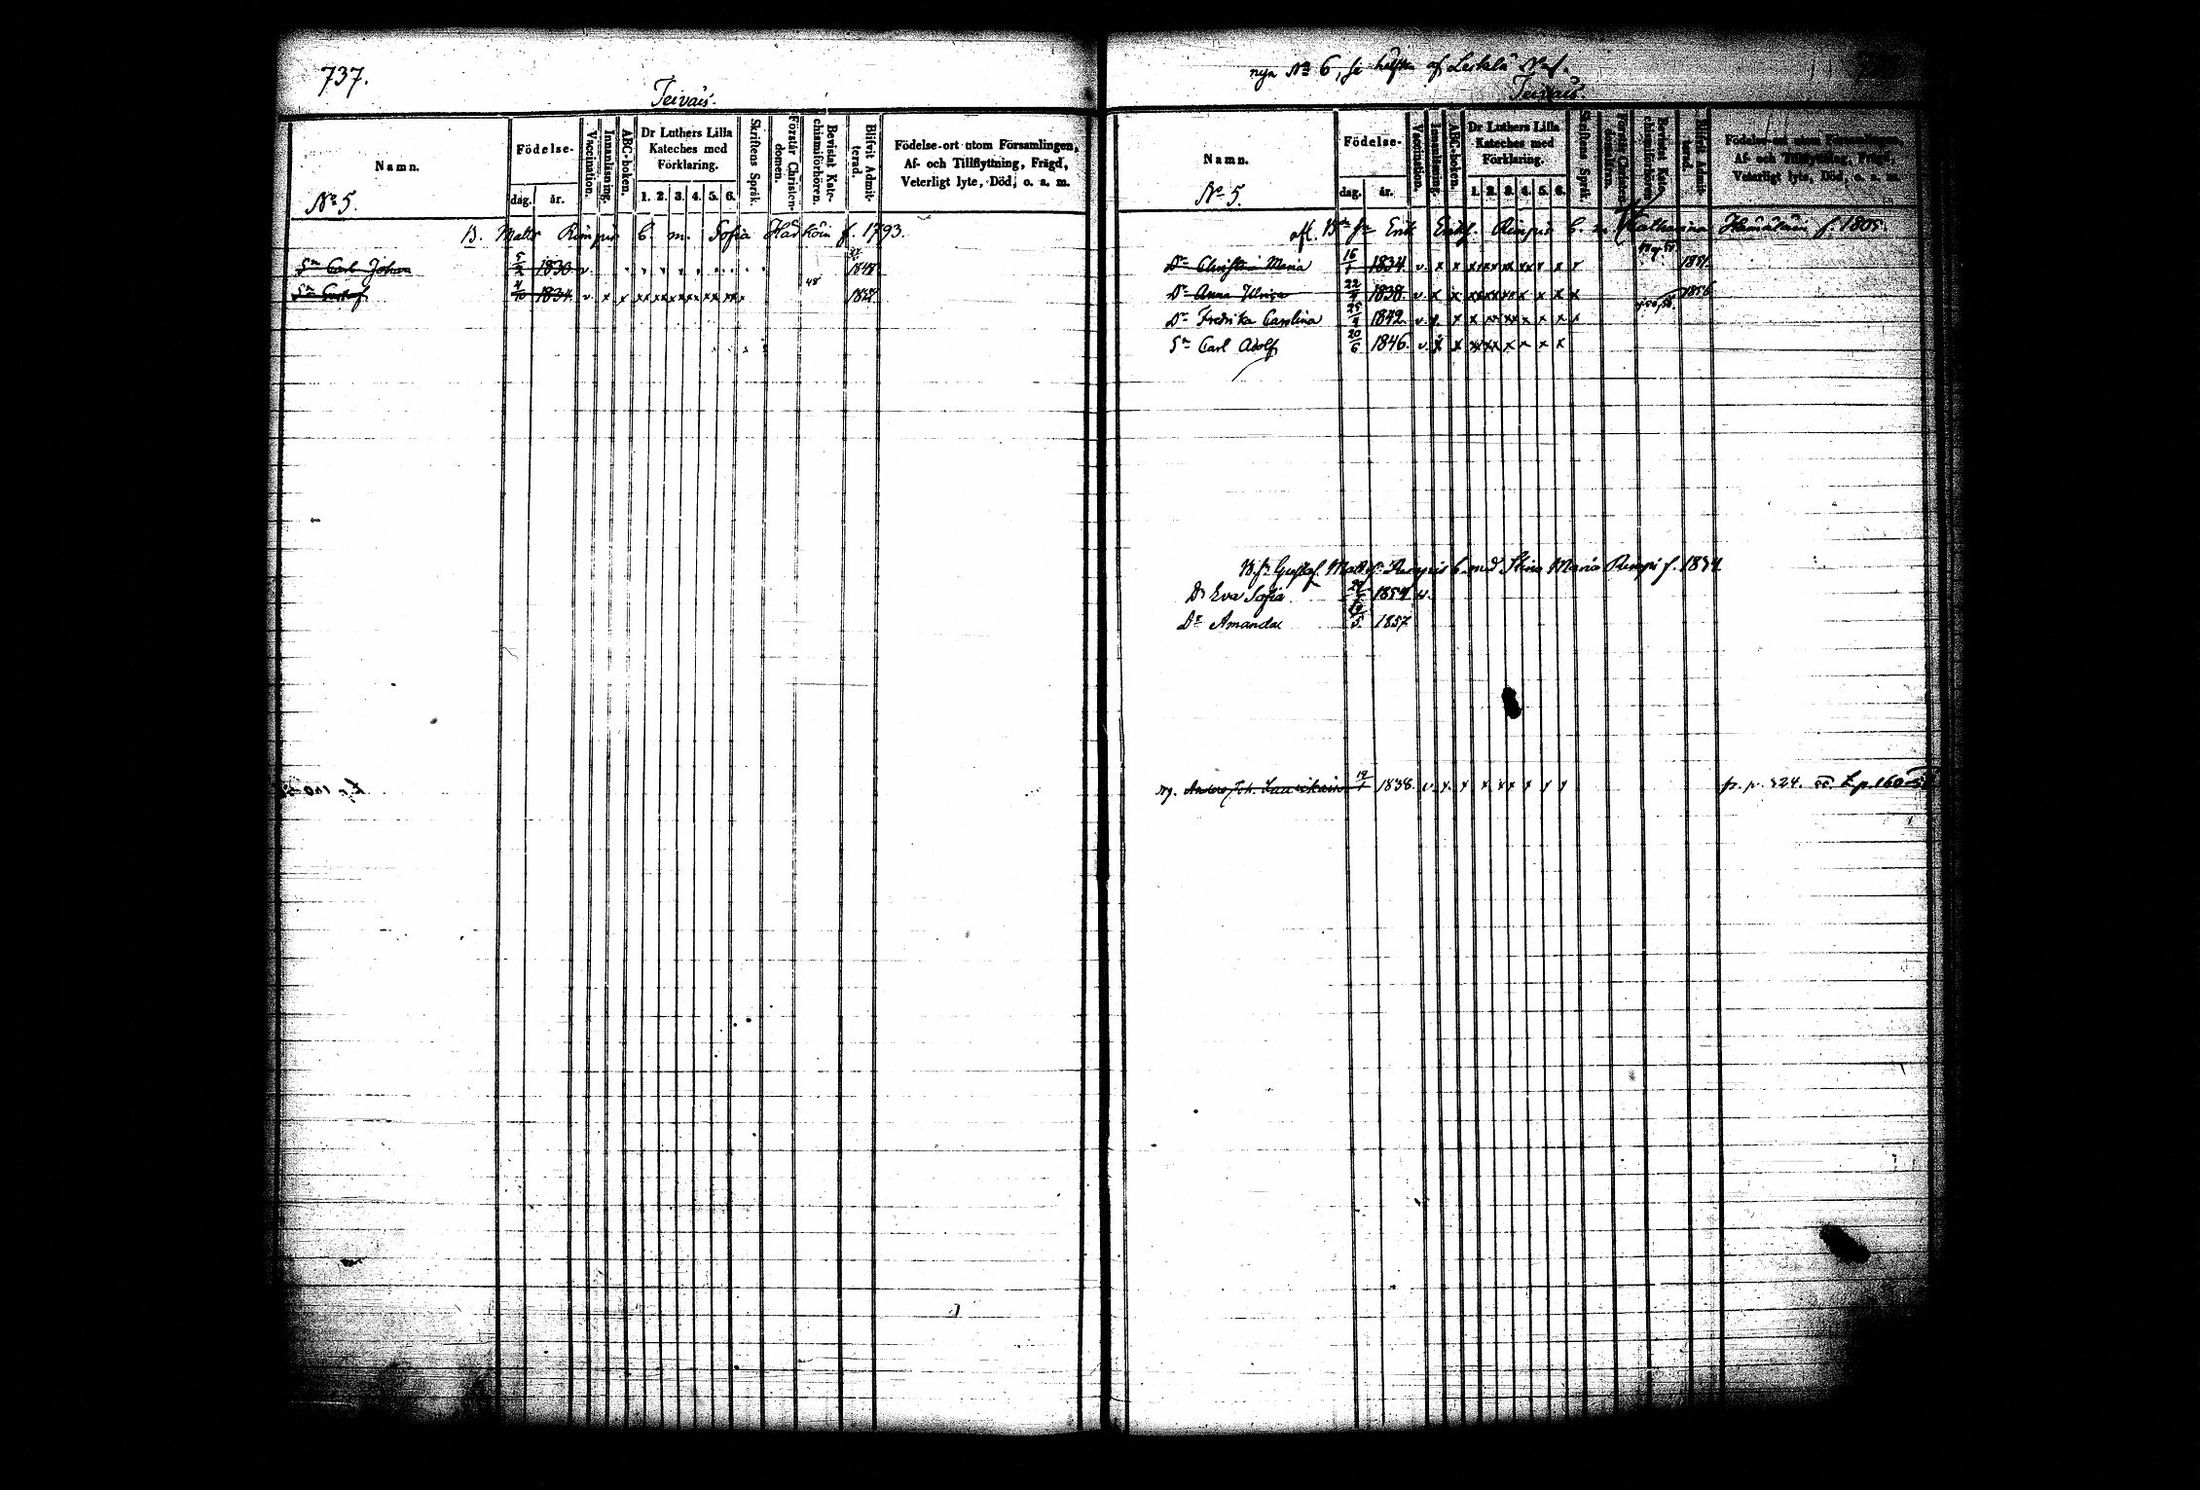 737.
Teivais.
Namn.
No 5.
Födelse-
dag.
år.
Vaccination.
Innanläsning.
ABC-boken.
Dr Luthers Lilla Kateches med Förklaring.
1. 2. 3. 4. 5. 6.
Skriftens Språk.
Förstår Christendomen.
Bevistat Katechismiförhören.
Blifvit Admitterad.
Födelse-ort utom Församlingen,
Af- och Tillflyttning, Frägd,
Veterligt lyte, Död, o. a. m.
B. Matts Rimpis b. m. Sofia f. 1793.
Sn Carl Johan 5/2 1830 v
Sn Gustaf 4/10 1834 v x x xx xx xx xx xx xx x 48
nya No 6, se hälften af
Teivais.
Namn.
No 5.
Födelse-
dag.
år.
Vaccination.
Innanläsning.
ABC-boken.
Dr Luthers Lilla Kateches med Förklaring.
1. 2. 3. 4. 5. 6.
Skriftens Språk.
Förstår Christendomen.
Bevistat Katechismiförhören.
Blifvit Admitterad.
Födelse-ort utom Församlingen,
Af- och Tillflyttning, Frägd,
Veterligt lyte, Död, o. a. m.
afl. Erik Erikss. Rimpis b. m. Catharina f. 1805.
Dr Christina Maria 16/1 1834 v. x x xx xx x xx x x x 1851
Dr Anna Ulrica 22/4 1838 v x x xx xx xx x x x x 1856
Dr Fredrika Carolina 1842 v. x x x xx xx x x x x
Sn Carl Adolf 20/6 1846 v. x x xx xx x x x x
Gustaf Matts. Rimpis b. med Stina Maria Rimpi f. 1834
Dr Eva Sofia 1854 v.
Dr Amanda 19/5 1857
Anders Joh. 19/1 1838 v x x x x x x x x
fr. p. 324. L p. 160